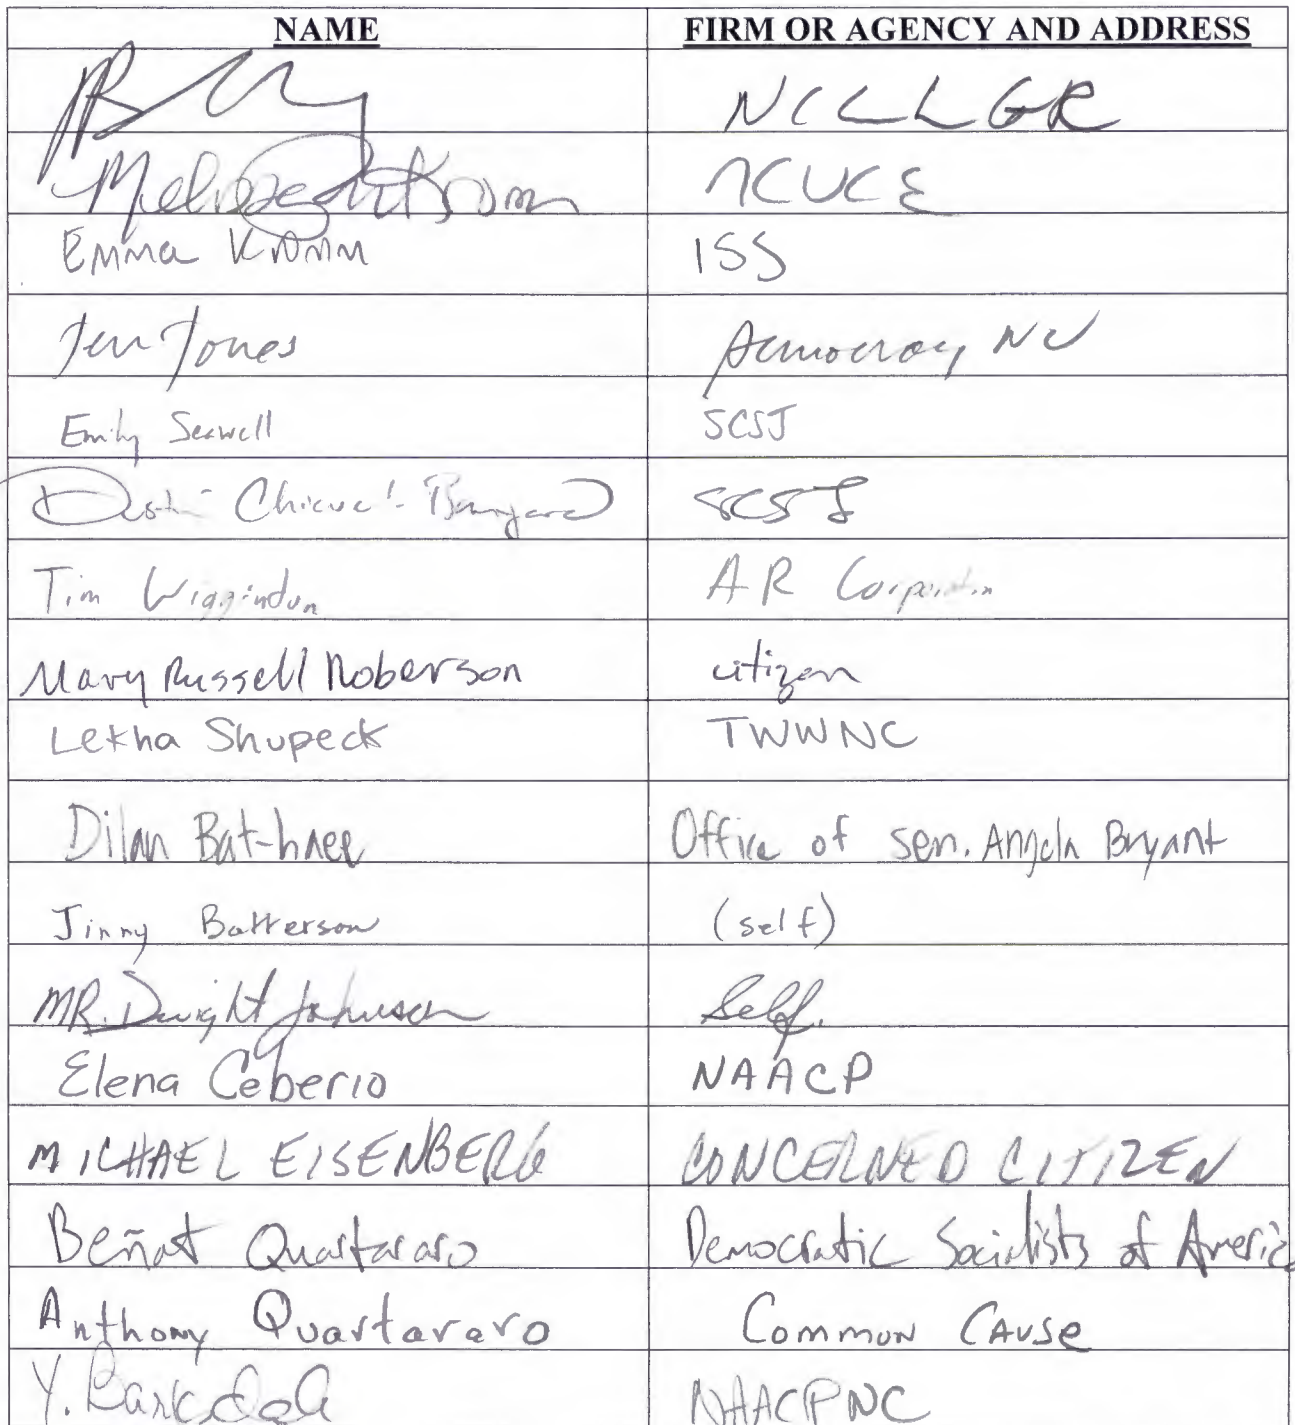 NAME FIRM OR AGENCY AND ADDRESS
NCLLGR
Kromm NCVCE
Emma Kromm ISS
Jen Jones Democracy NC
Emily Seawell SCSJ
SCSJ
Tim Wiggindon A R Corporation
Mary Russell Roberson citizen
Lekha Shupeck TWWNC
Dilan Bat-haee Office of Sen. Angela Bryant
Jinny Batterson (self)
MR. Dwight Johnson Self.
Elena Ceberio NAACP
MICHAEL EISENBERG CONCERNED CITIZEN
Beñat Quartararo Democratic Socialists of America
Anthony Quartararo Common Cause
Y. Barksdale NAACP NC